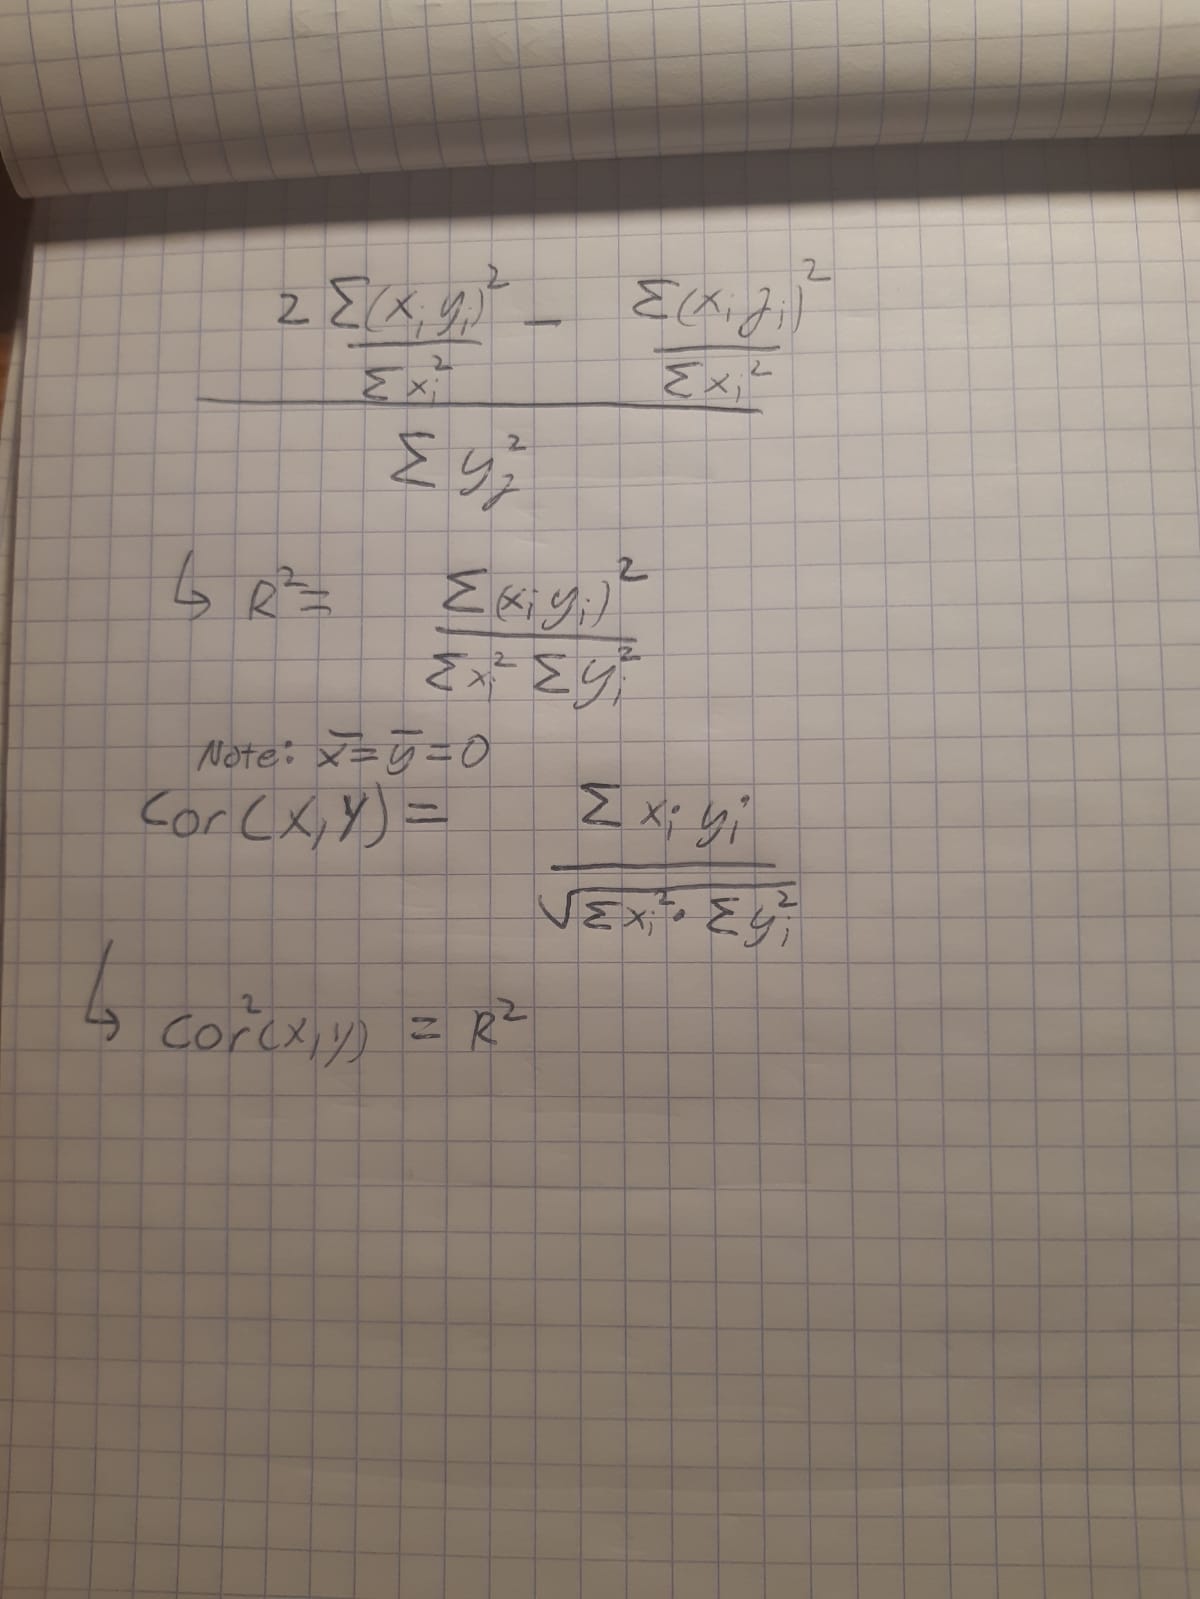 2 Σ(xᵢ yᵢ)² − Σ(xᵢ yᵢ)²
Σ xᵢ² Σ xᵢ²
Σ yⱼ²
↳ R² = Σ(xᵢ yᵢ)²
Σ xᵢ² Σ yᵢ²
Note: x̄ = ȳ = 0
Cor(X,Y) = Σ xᵢ yᵢ
√Σ xᵢ² · Σ yᵢ²
↳ Cor²(X,Y) = R²